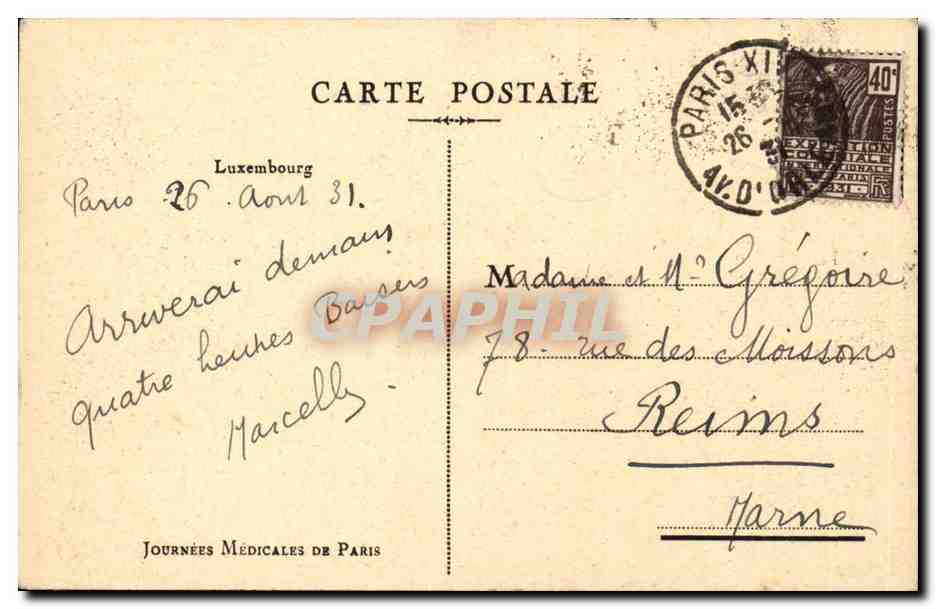 CARTE POSTALE
Luxembourg
Paris 26 Aout 31.
Arriverai demain
quatre heures Baisers
Marcelle
JOURNÉES MÉDICALES DE PARIS
PARIS XI
15
26
31
AV. D'
40c
POSTES
EXPOSITION
COLONIALE
INTERNATIONALE
PARIS
1931
Madame et Mr Grégoire
78 - rue des Moissons
Reims
Marne
CPAPHIL